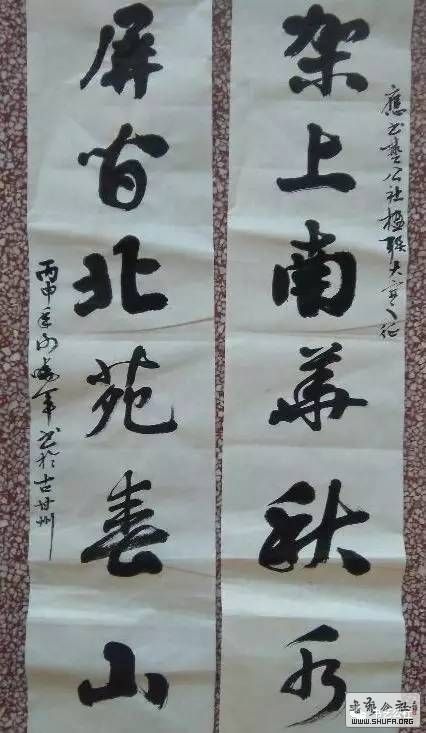 架上南華秋水
應書藝公社楹聯大賽之徵
屏間北苑春山
丙申
書於古甘州
書藝公社
WWW.SHUFA.ORG